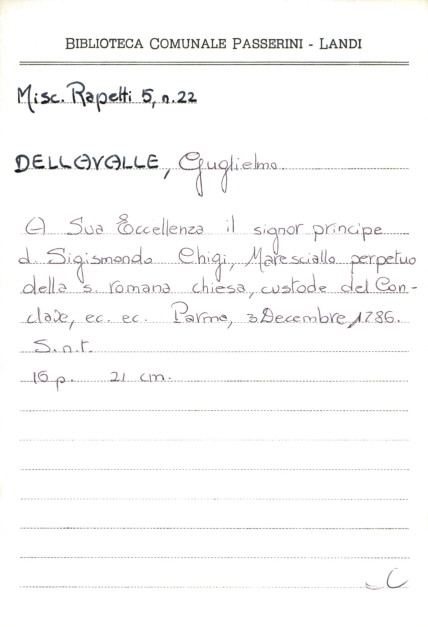 BIBLIOTECA COMUNALE PASSERINI - LANDI
Misc. Rapetti 5, n. 22
DELLAVALLE, Guglielmo
A Sua Eccellenza il signor principe
d. Sigismondo Chigi, Maresciallo perpetuo
della s. romana chiesa, custode del Con-
clave, ec. ec. Parma, 3 Decembre 1786.
S.n.t.
16 p. 21 cm.
C